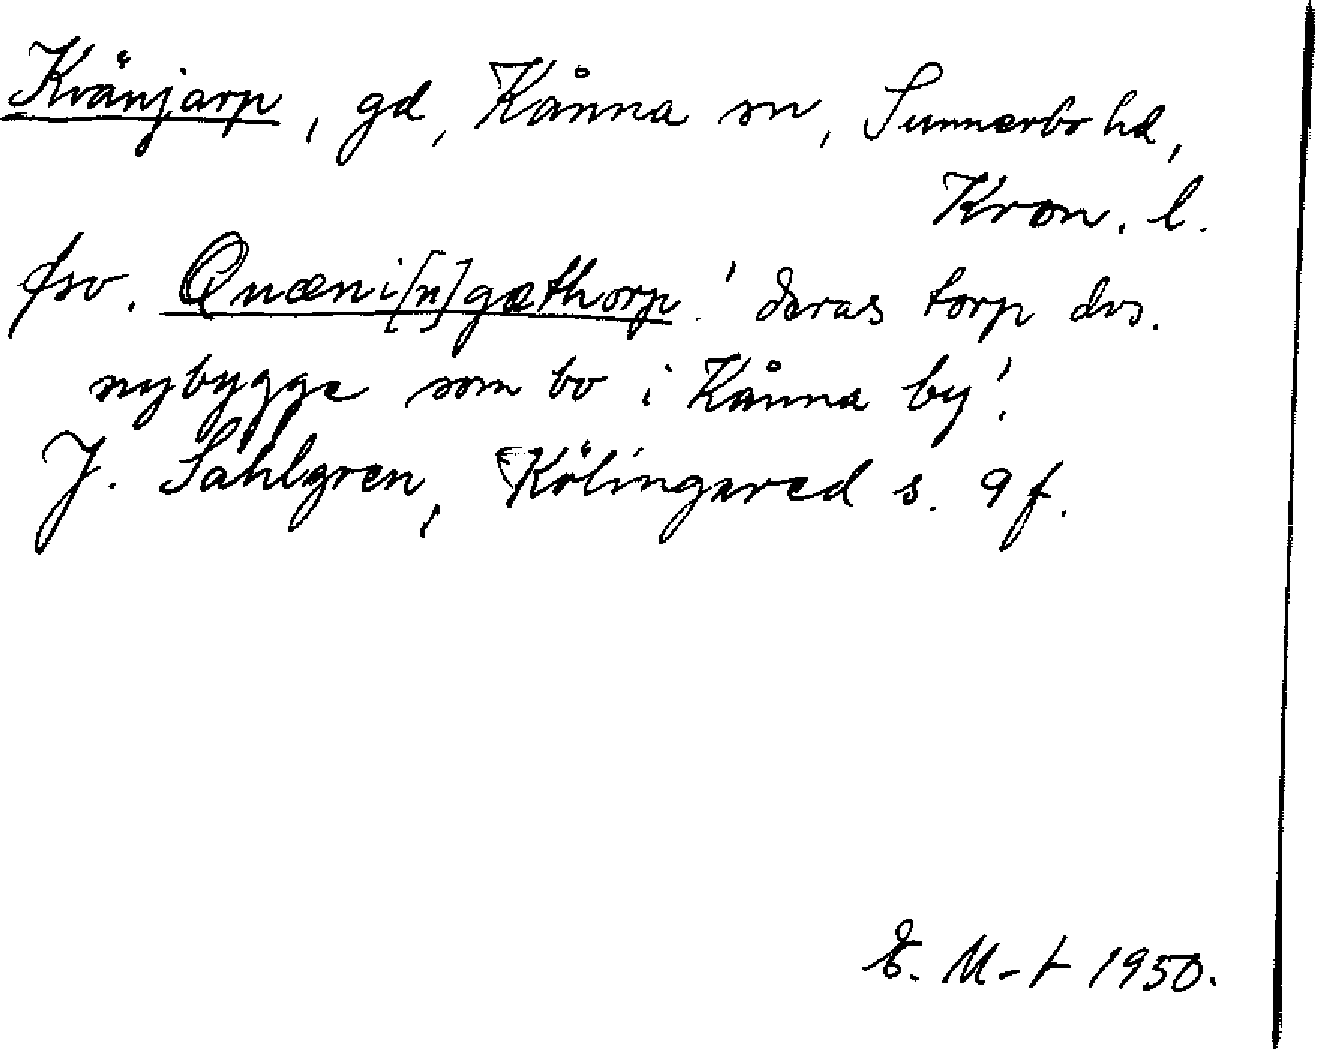 Kvänjarp, gd, Kånna sn, Sunnerbo hd,
Kron. l.
fsv. Quæni[n]gæthorp. 'deras torp dvs.
nybygge som bo i Kånna by'.
J. Sahlgren, Kölingared s. 9 f.
E. M-t 1950.